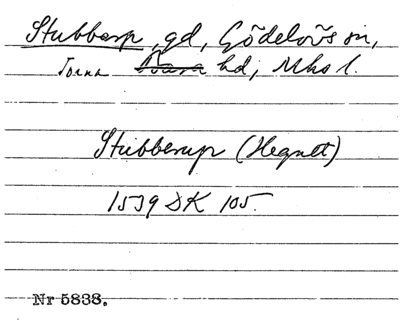 Stubbarp, gd, Gödelövs sn,
Torna Bara hd, Mhs l.
Stubberup (Hegnett)
1539 DK 105.
Nr 5838.